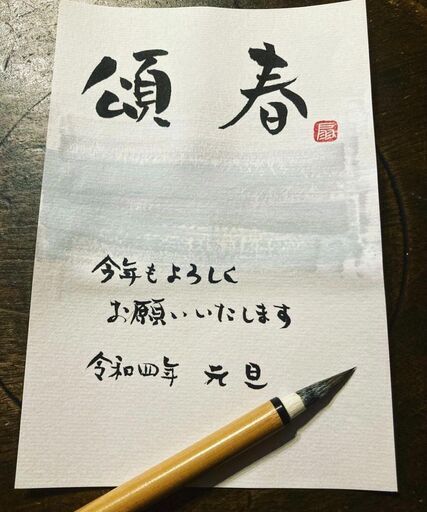 頌春
今年もよろしく
お願いいたします
令和四年 元旦